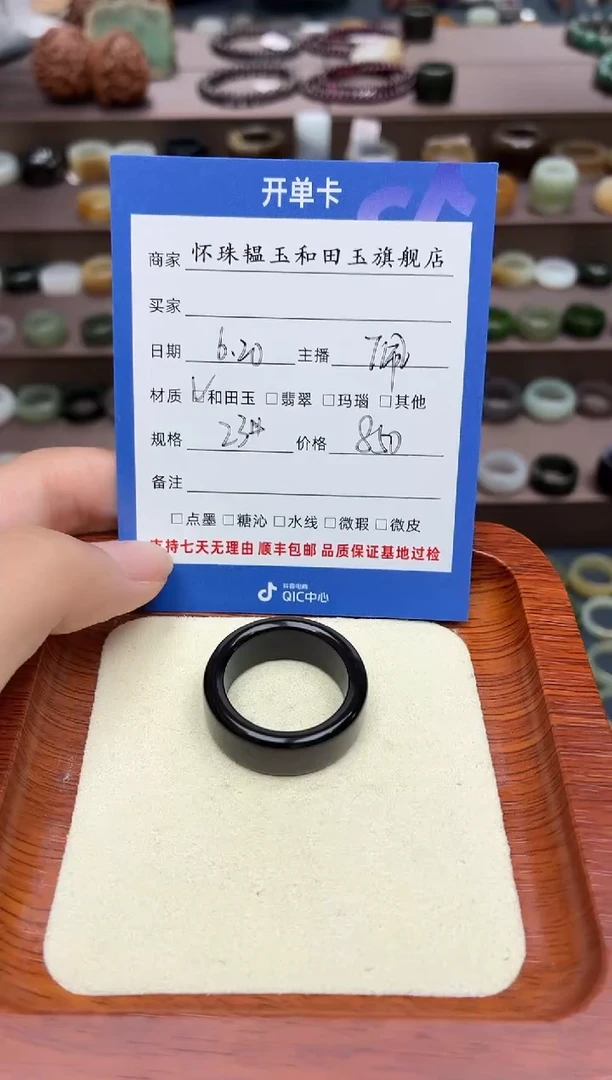 开单卡
商家 怀珠韫玉和田玉旗舰店
买家
日期 6.20 主播
材质 ☑和田玉 □翡翠 □玛瑙 □其他
规格 23# 价格 850
备注
□点墨 □糖沁 □水线 □微瑕 □微皮
支持七天无理由 顺丰包邮 品质保证基地过检
抖音电商
QIC中心